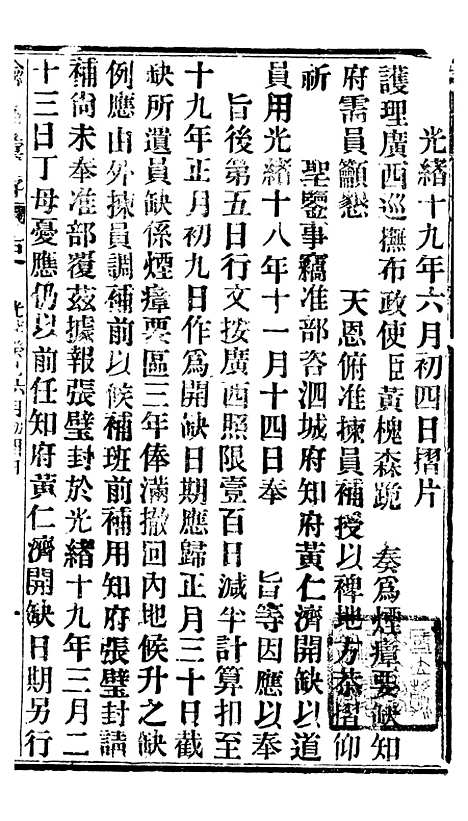 光緒十九年六月初四日摺片
護理廣西巡撫布政使臣黃槐森跪 奏為煙瘴要缺知
府需員籲懇 天恩俯准揀員補授以裨地方恭摺仰
祈 聖鑒事竊准部咨泗城府知府黃仁濟開缺以道
員用光緒十八年十一月十四日奉 旨等因應以奉
旨後第五日行文按廣西照限壹百日減半計算扣至
十九年正月初九日作為開缺日期應歸正月三十日截
缺所遺員缺係煙瘴要區三年俸滿撤回內地候升之缺
例應由外揀員調補前以候補班前補用知府張璧封請
補尙未奉准部覆茲據報張璧封於光緒十九年三月二
十三日丁母憂應仍以前任知府黃仁濟開缺日期另行